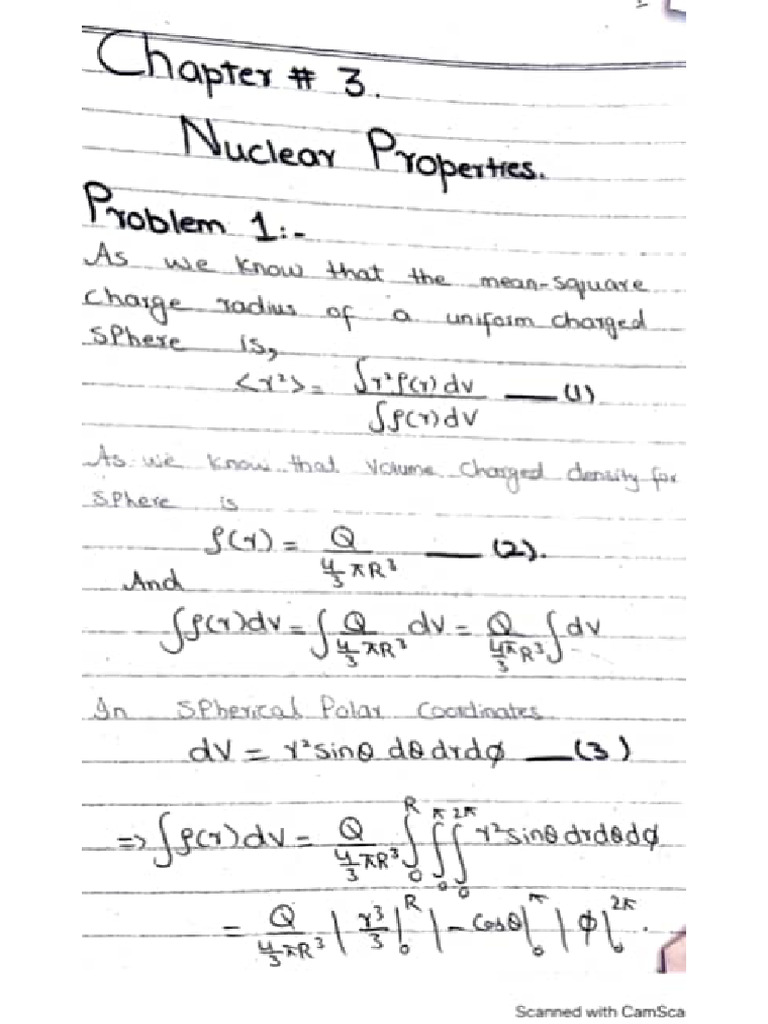 Chapter # 3.
Nuclear Properties.
Problem 1:-
As we know that the mean-square
charge radius of a uniform charged
sphere is,
<r²> = ∫r²ρ(r)dv / ∫ρ(r)dV — (1)
As we know that volume charged density for
sphere is
ρ(r) = Q / (4/3 πR³) — (2).
And
∫ρ(r)dv = ∫ Q / (4/3 πR³) dv = Q / (4/3 πR³) ∫dv
In Spherical Polar Coordinates
dV = r²sinθ dθdrdφ — (3)
=> ∫ρ(r)dv = Q / (4/3 πR³) ∫₀ᴿ ∫₀^π ∫₀^2π r²sinθ drdθdφ
= Q / (4/3 πR³) |r³/3|₀ᴿ |-cosθ|₀^π |φ|₀^2π.
Scanned with CamSca